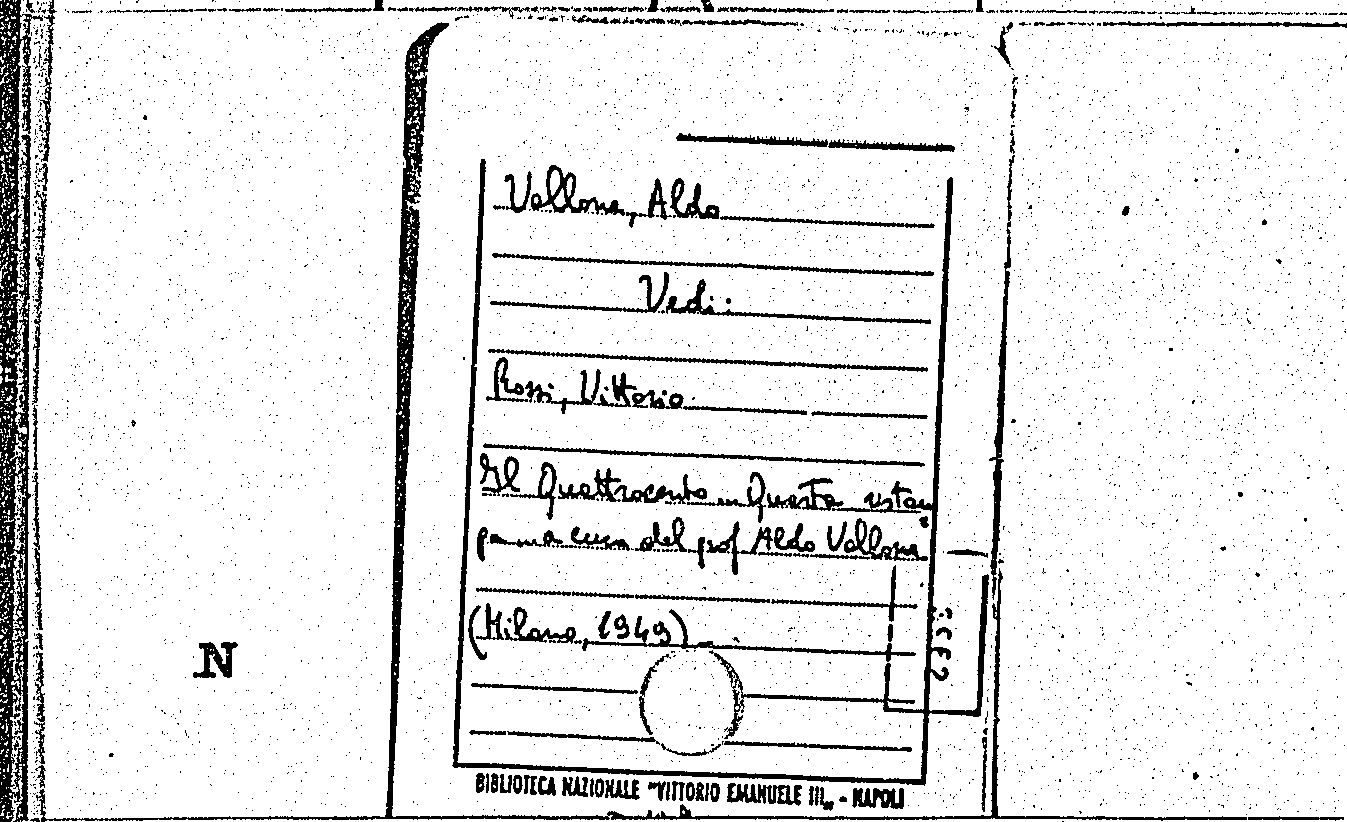 Vallone, Aldo
Vedi:
Rossi, Vittorio
Il Quattrocento... Questa ristam
pa... a cura del prof Aldo Vallone
(Milano, 1949)
N
BIBLIOTECA NAZIONALE "VITTORIO EMANUELE III„ - NAPOLI